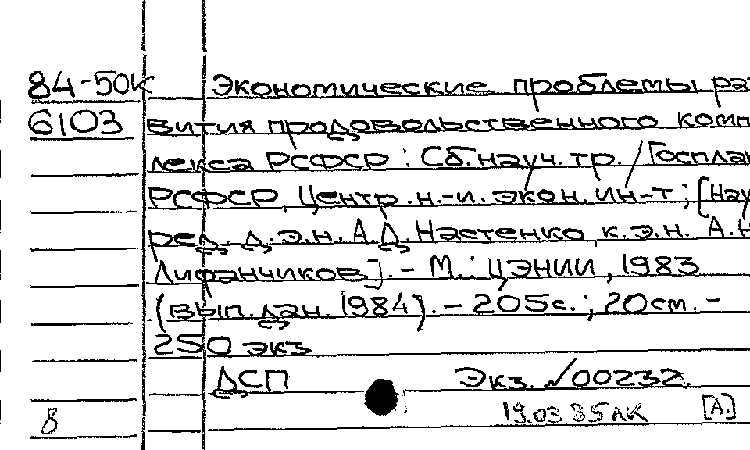 84-50к Экономические проблемы раз
6103 вития продовольственного комп
лекса РСФСР : Сб. науч. тр. / Госплан
РСФСР, Центр. н-и. экон. ин-т ; [Нау
ред. д.э.н. А.Д. Настенко, к.э.н. А.Н
Лифанчиков]. - М. : ЦЭНИИ, 1983
(вып. дан. 1984). - 205с. ; 20см. -
250 экз
ДСП Экз. №00232
8 19.03 85 АК [А.]